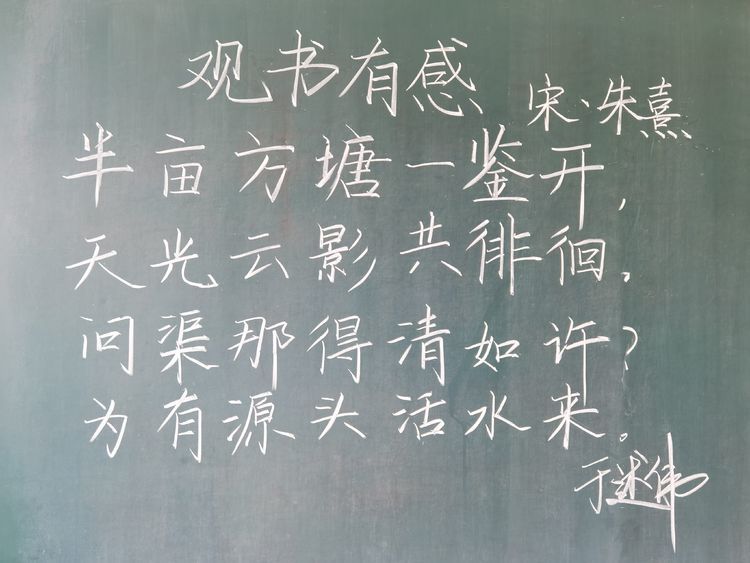 观书有感
宋·朱熹
半亩方塘一鉴开,
天光云影共徘徊。
问渠那得清如许?
为有源头活水来。
于述伟